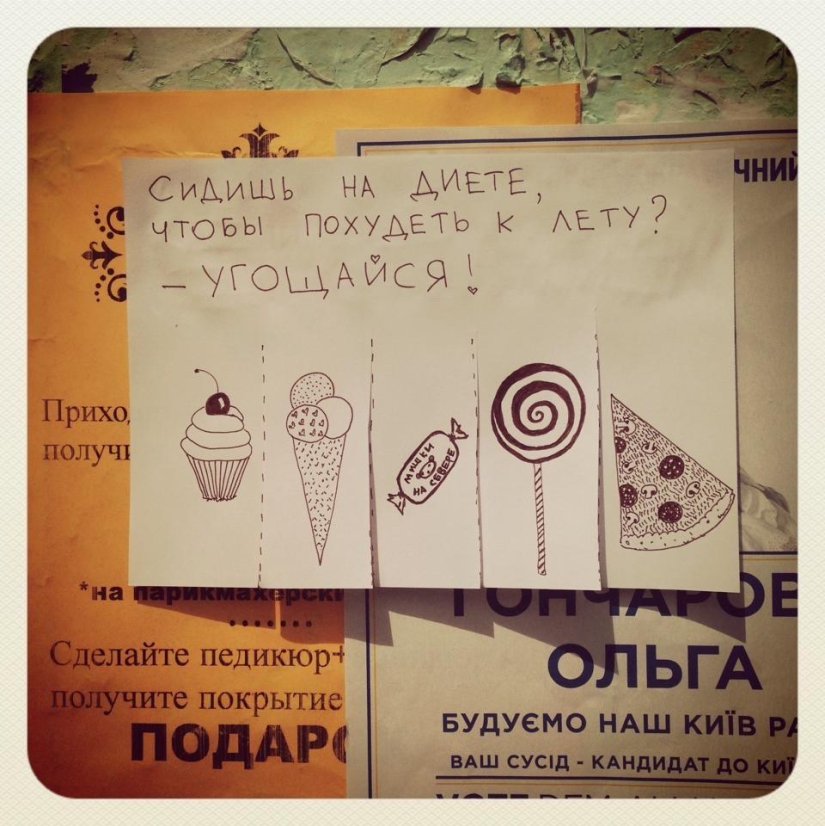 СИДИШЬ НА ДИЕТЕ,
ЧТОБЫ ПОХУДЕТЬ К ЛЕТУ?
– УГОЩАЙСЯ!
МИШКИ
НА СЕВЕРЕ
*на парикмахерски
Сделайте педикюр+
получите покрытие
ПОДАР
ЧНИЙ
ГОНЧАРОВ
ОЛЬГА
БУДУЄМО НАШ КИЇВ РА
ВАШ СУСІД - КАНДИДАТ ДО КИЇ